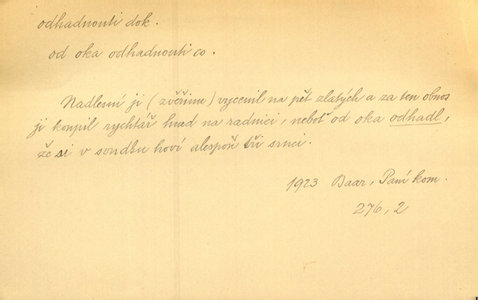 odhadnouti dok.
od oka odhadnouti co.
Nadlesní ji (zvěřinu) vycenil na pět zlatých a za ten obnos
ji koupil rychtář hned na radnici, neboť od oka odhadl,
že si v soudku hoví alespoň tři srnci.
1923 Baar, Paní kom.
276, 2